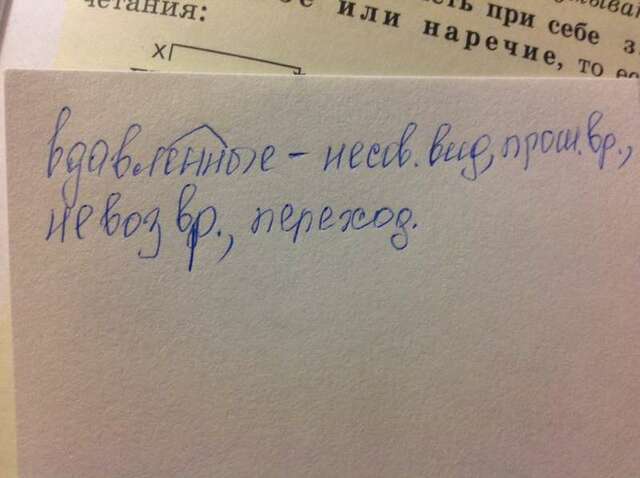 четания:
ть при себе з
или наречие, то
х
вдавленные - несов. вид, прош. вр.,
невозвр., переход.